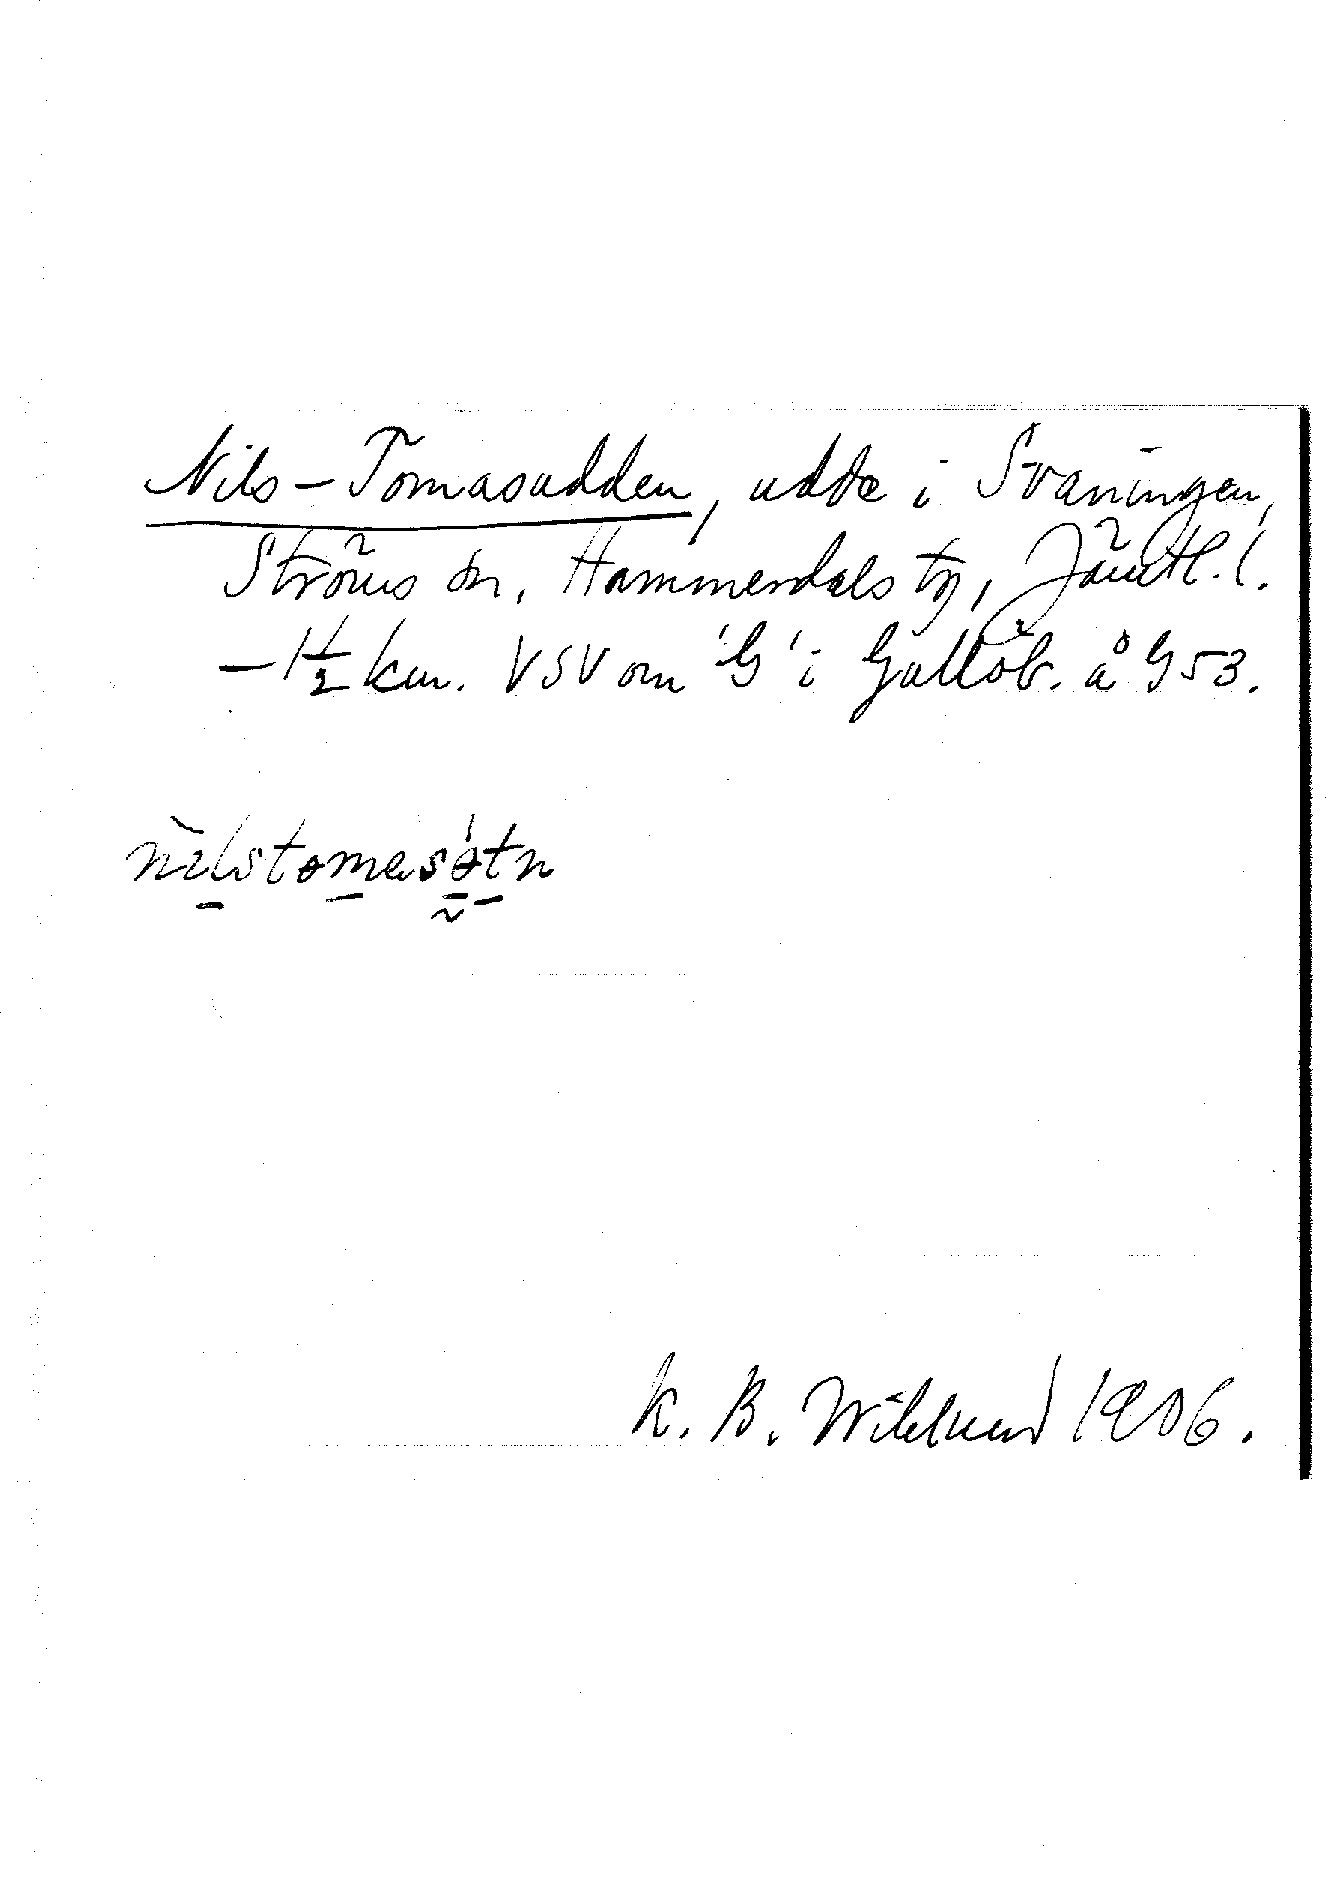 Nils-Tomasudden, udde i Svaningen,
Ströms sn, Hammerdals tg, Jämtl. l.
- 1 1/2 km. VSV om 'G' i Gallöb. å G 53.
nìlstomasótn
K. B. Wiklund 1906.